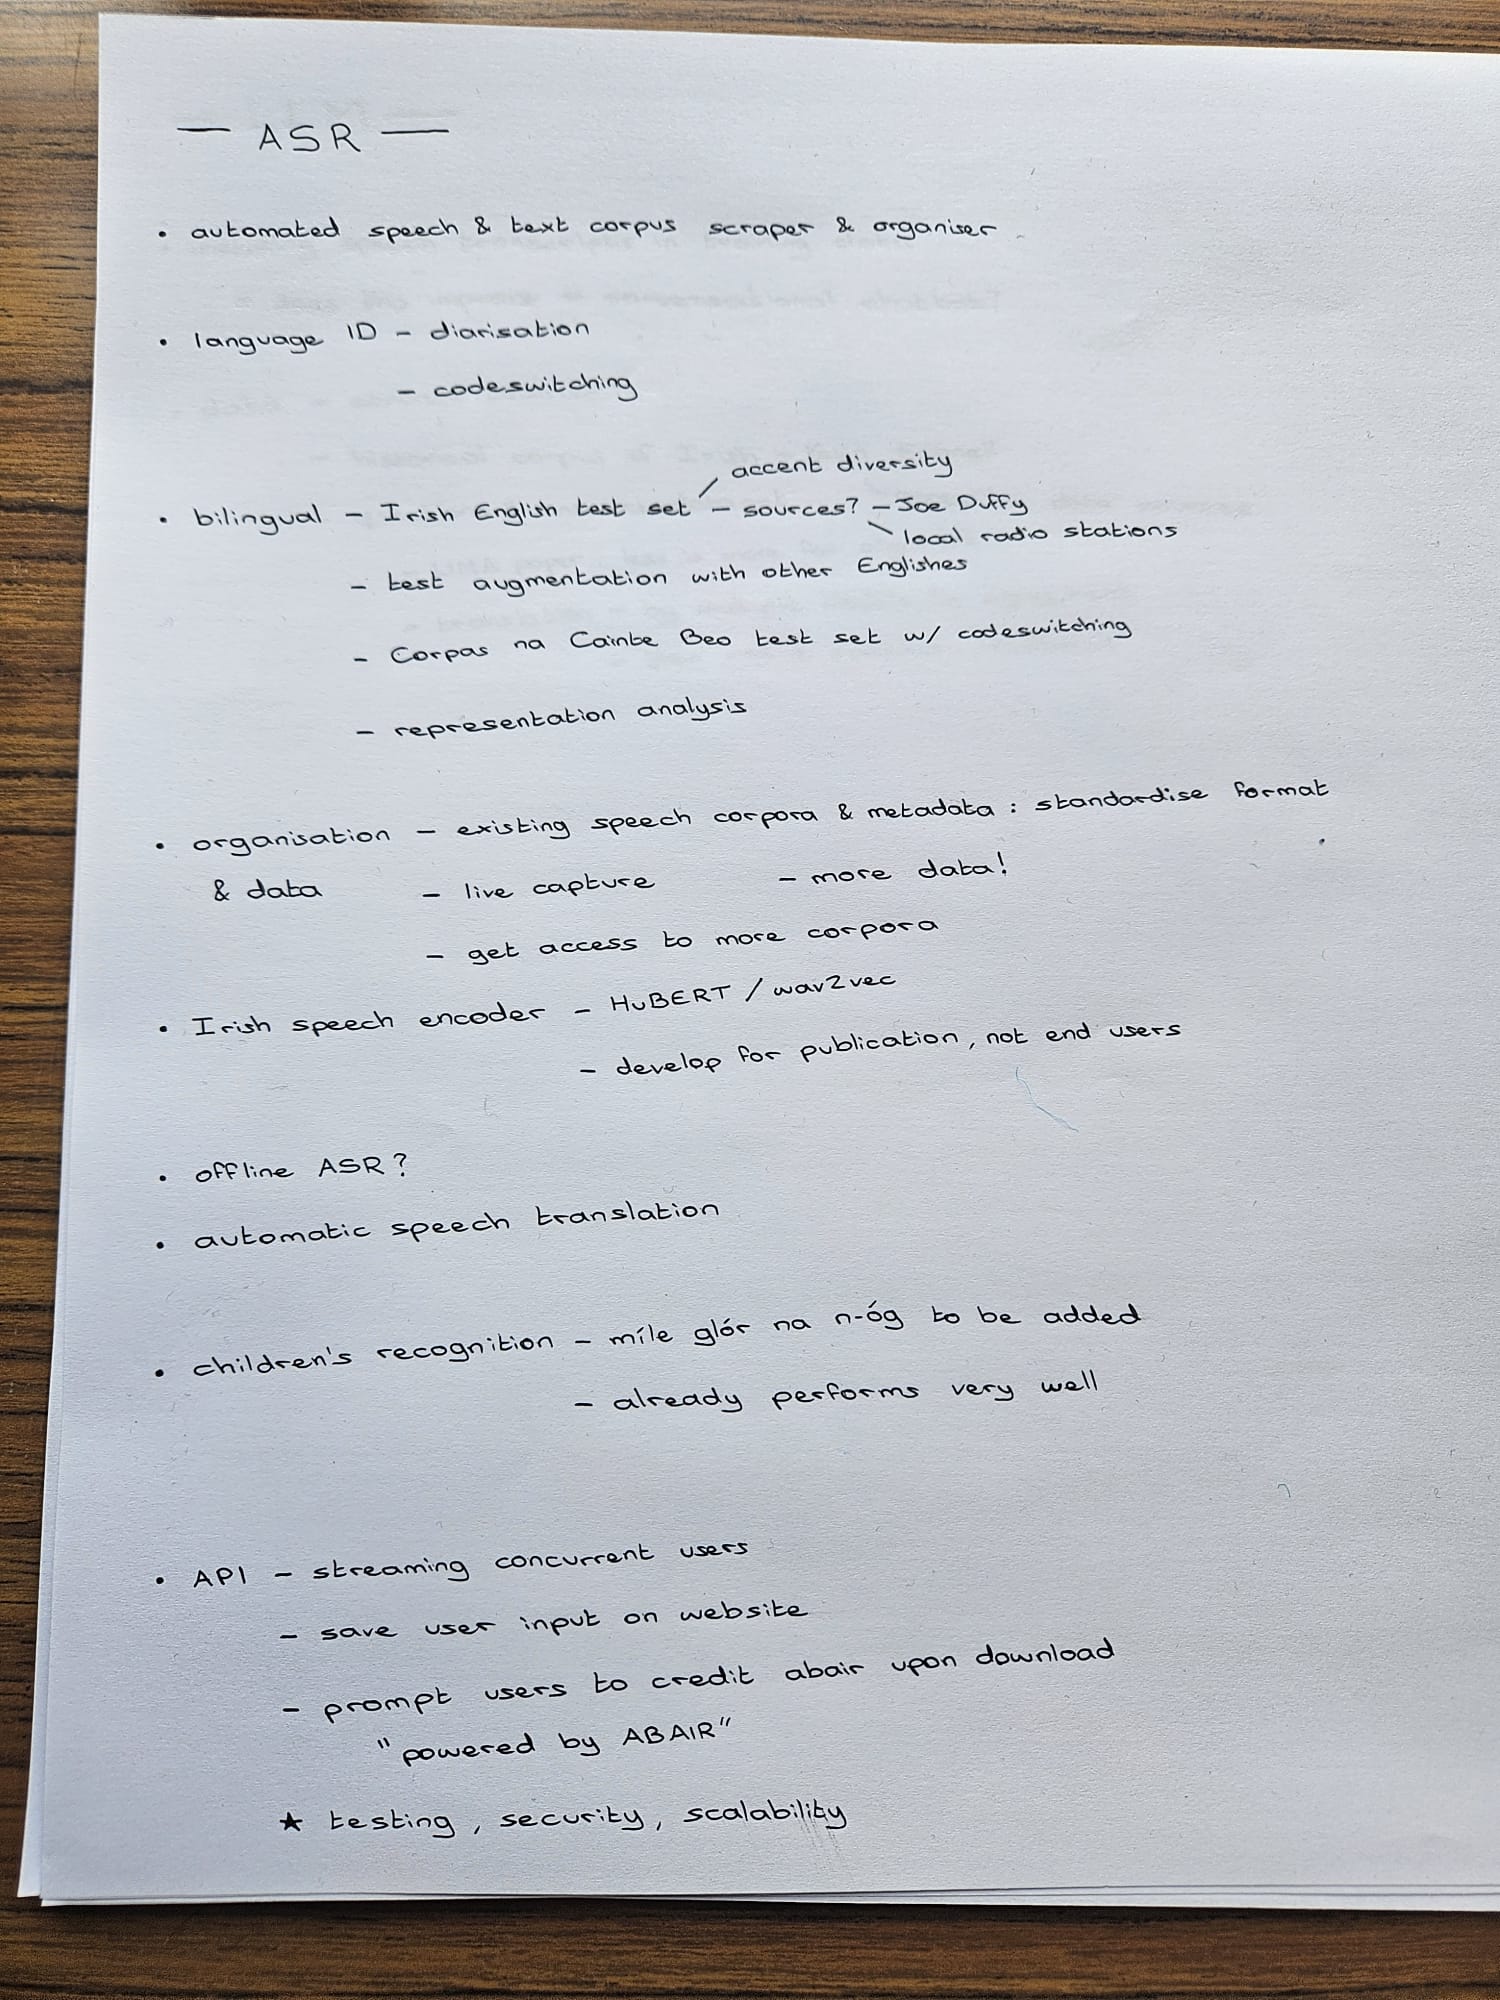 — ASR —
• automated speech & text corpus scraper & organiser
• language ID – diarisation
– codeswitching
accent diversity
• bilingual – Irish English test set – sources? – Joe Duffy
local radio stations
– test augmentation with other Englishes
– Corpas na Cainte Beo test set w/ codeswitching
– representation analysis
• organisation – existing speech corpora & metadata : standardise format
& data – live capture – more data!
– get access to more corpora
• Irish speech encoder – HuBERT / wav2vec
– develop for publication, not end users
• offline ASR?
• automatic speech translation
• children's recognition – míle glór na n-óg to be added
– already performs very well
• API – streaming concurrent users
– save user input on website
– prompt users to credit abair upon download
"powered by ABAIR"
★ testing, security, scalability